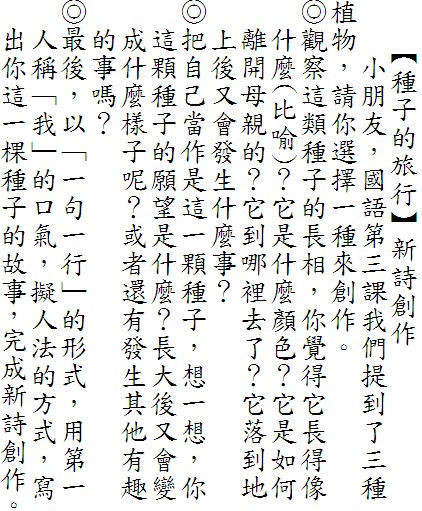 【種子的旅行】新詩創作
小朋友，國語第三課我們提到了三種
植物，請你選擇一種來創作。
◎觀察這類種子的長相，你覺得它長得像
什麼(比喻)？它是什麼顏色？它是如何
離開母親的？它到哪裡去了？它落到地
上後又會發生什麼事？
◎把自己當作是這一顆種子，想一想，你
這顆種子的願望是什麼？長大後又會變
成什麼樣子呢？或者還有發生其他有趣
的事嗎？
◎最後，以「一句一行」的形式，用第一
人稱「我」的口氣，擬人法的方式，寫
出你這一棵種子的故事，完成新詩創作。